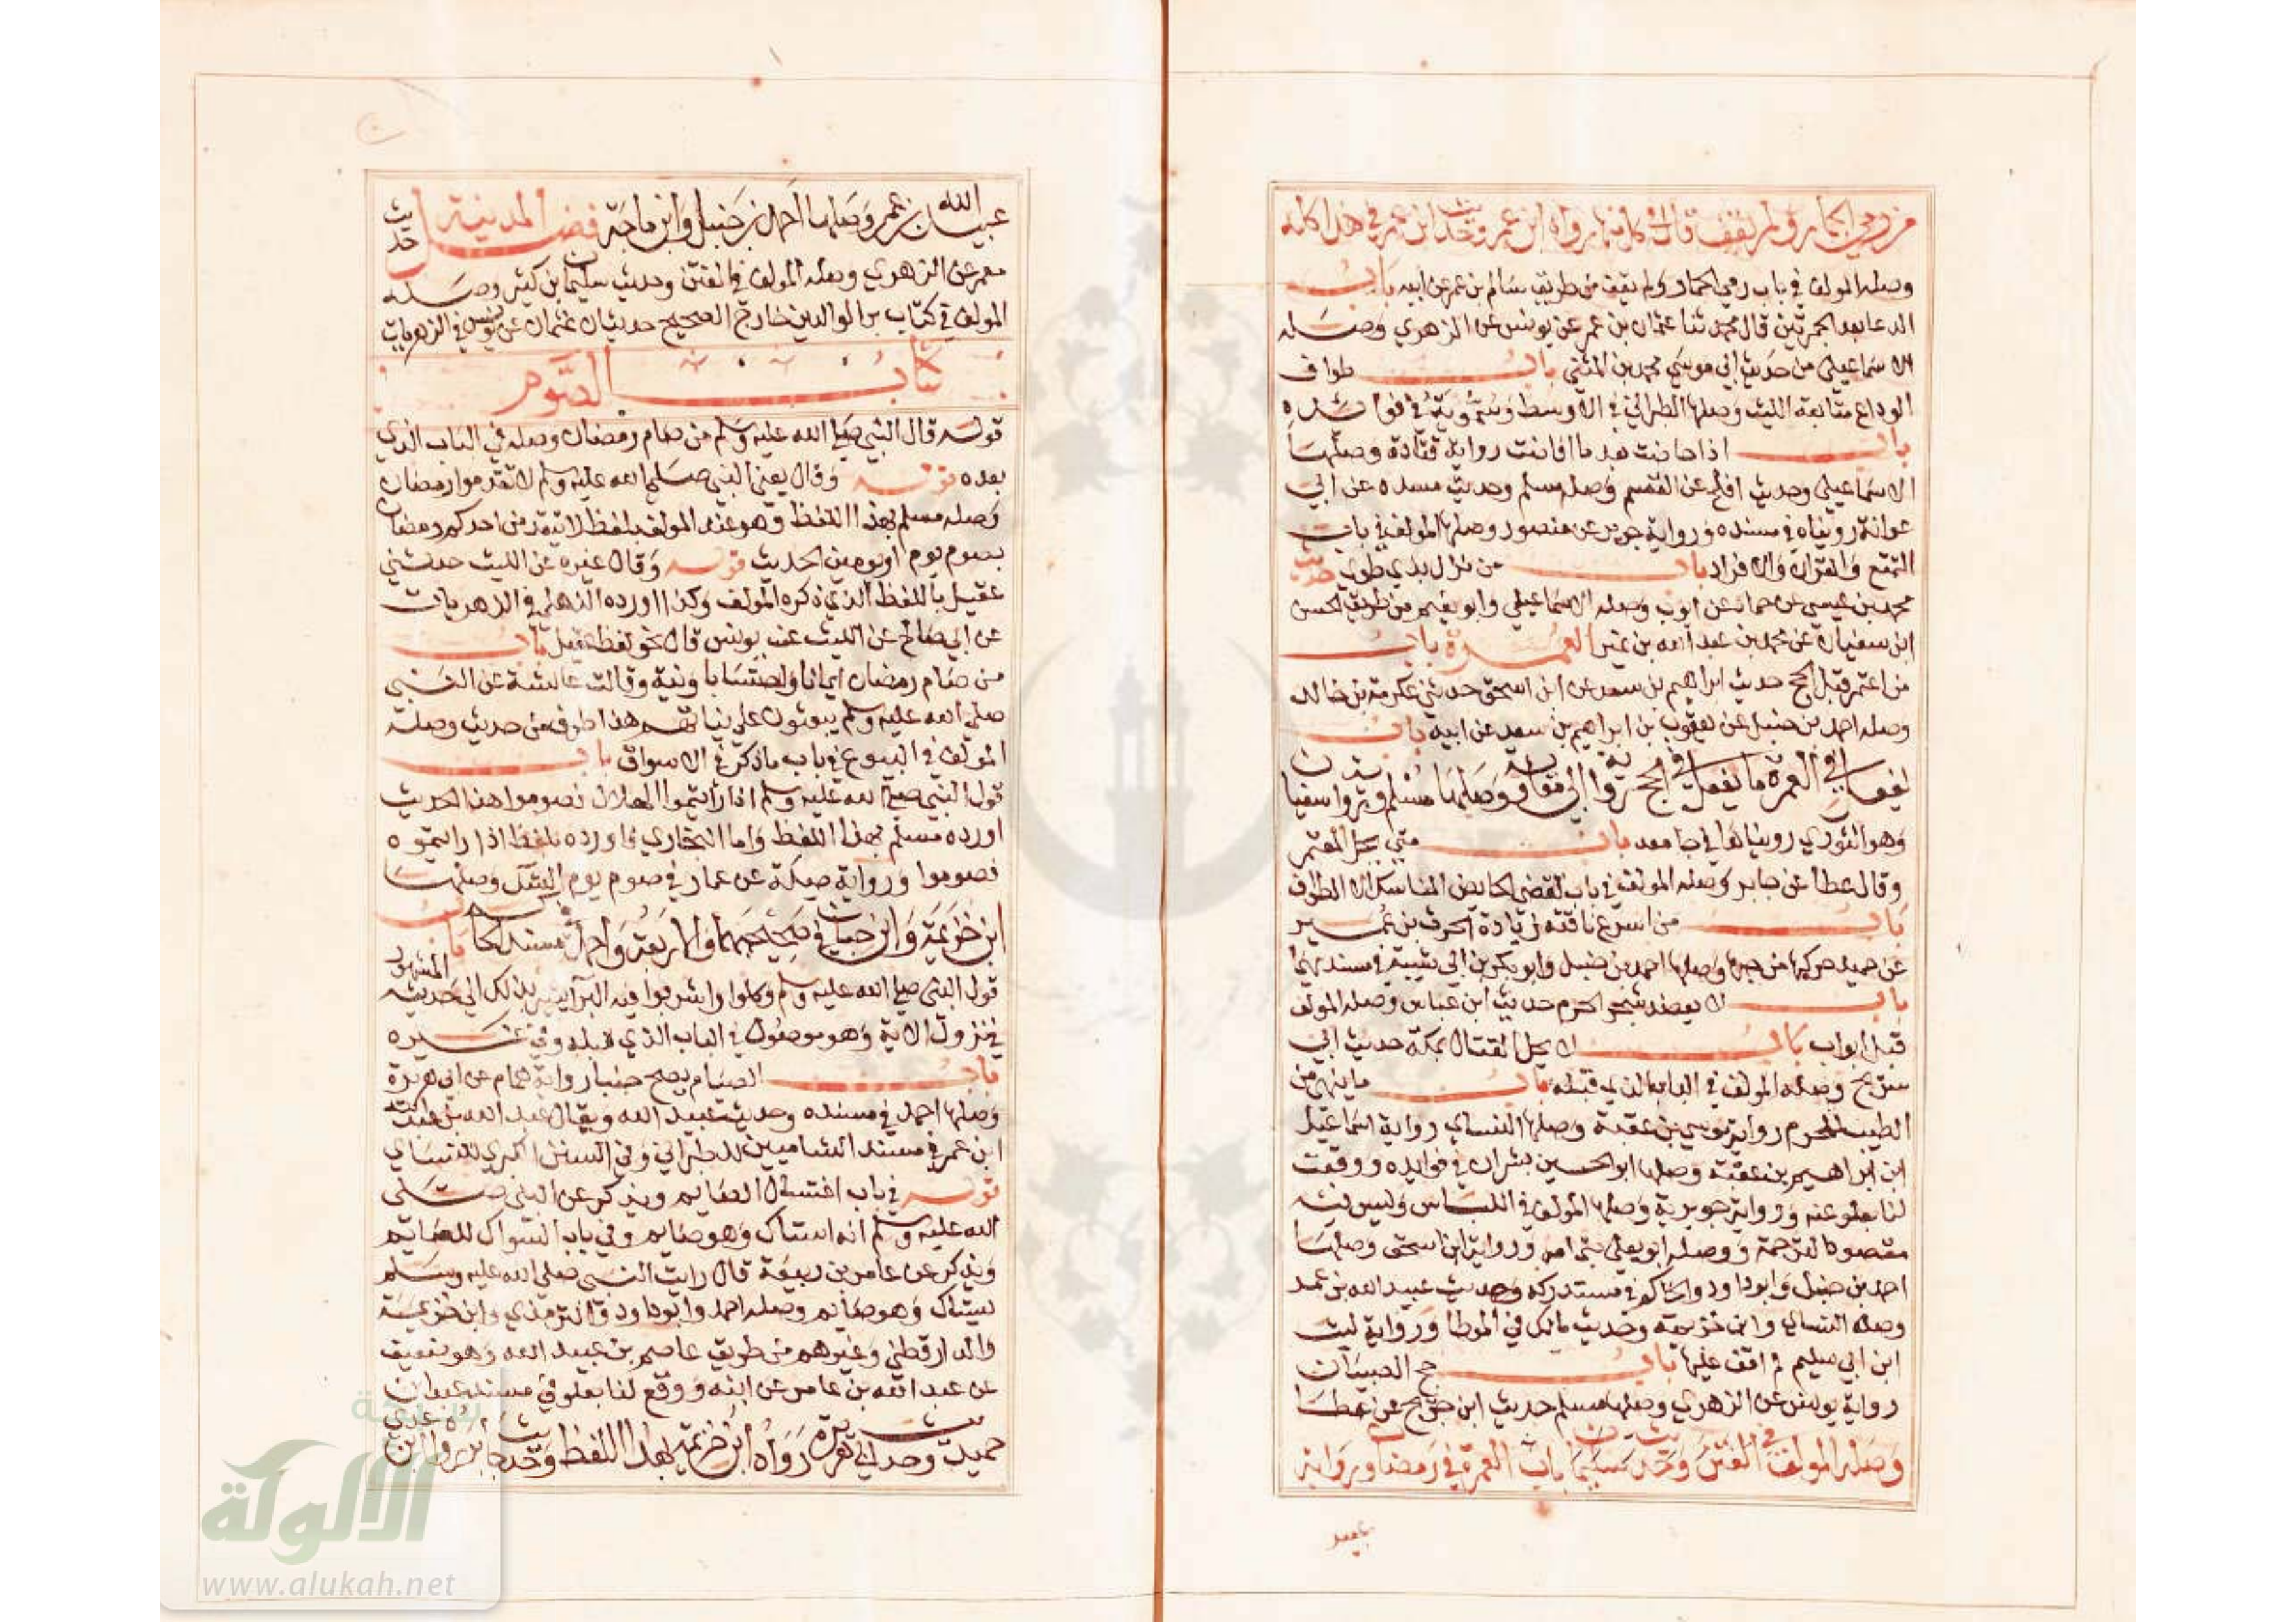 من رمي الجمار ولم يقف قال وكل منهما رواه ابن عمر وحديث ابن عمر في هذا كله
وصله المولف في باب رمي الجمار ولم يقف من طريق سالم بن عمر عن ابيه باب
الدعا بعد الجمرتين قال محمد ثنا عثمان بن عمر عن يونس عن الزهري وصله
الاسماعيلي من حديث ابي موسي محمد بن المثني باب طواف
الوداع متابعة الليث وصلها الطبراني في الاوسط وسمويه في فوائده
باب اذا حاضت بعد ما افاضت رواية قتادة وصلها
الاسماعيلي وحديث افلح عن القسم وصله مسلم وحديث مسدد عن ابي
عوانة رويناه في مسنده ورواية جرير عن منصور وصلها المولف في باب
التمتع والقران والافراد باب من نزل بذي طوي حديث
محمد بن عيسي عن حماد عن ايوب وصله الاسماعيلي وابو نعيم من طريق الحسن
ابن سفيان عن محمد بن عبد الله بن نمير العمرة باب
من اعتمر قبل الحج حديث ابراهيم بن سعد عن ابن اسحق حدثني عكرمة بن خالد
وصله احمد بن حنبل عن يعقوب بن ابراهيم بن سعد عن ابيه باب
يفعل في العمرة ما يفعل في الحج رواية ابي معاوية وصلها مسلم وسفيان
وهو الثوري رويناها في جامعه باب متي يحل المعتمر
وقال عطا عن جابر وصله المولف في باب تقضي الحايض المناسك الا الطواف
باب من اسرع ناقته زيادة الحرث بن عمير
عن حميد حركها من حبها وصلها احمد بن حنبل وابو بكر بن ابي شيبة في مسنديهما
باب لا يعضد شجر الحرم حديث ابن عباس وصله المولف
قبل ابواب باب لا يحل القتال بمكة حديث ابي
شريح وصله المولف في الباب الذي قبله باب ما ينهي من
الطيب للمحرم رواية موسي بن عقبة وصلها النساي رواية اسماعيل
ابن ابراهيم بن عقبة وصلها ابو الحسين بشران في فوايده ووقعت
لنا بعلو عنه ورواية جويرية وصلها المولف في اللباس وليس فيه
مقصود الترجمة ووصله ابو يعلي بتمامه ورواية ابن اسحق وصلها
احمد بن حنبل وابو داود والحاكم في مستدركه وحديث عبيد الله بن عمر
وصله النساي وابن خزيمة وحديث مالك في الموطا ورواية ليث
ابن ابي سليم لم اقف عليها باب حج الصبيان
رواية يونس عن الزهري وصلها مسلم حديث ابن جريج عن عطا
وصله المولف في وحديث باب العمرة في رمضان ورواية
عبيد الله بن عمرو وصلها احمد بن حنبل وابن ماجة فضل المدينة حديث
معمر عن الزهري وصله المولف في الفتن وحديث سليمان بن كثير وصله
المولف في كتاب بر الوالدين خارج الصحيح حديثان عثمان عن يونس في الزهريات
كتاب الصوم
قوله قال النبي صلي الله عليه وسلم من صام رمضان وصله في الباب الذي
بعده قوله وقال يعني النبي صلي الله عليه وسلم لا تقدموا رمضان
وصله مسلم بهذا اللفظ وهو عند المولف بلفظ لا يتقدمن احدكم رمضان
بصوم يوم او يومين الحديث قوله وقال غيره عن الليث حدثني
عقيل باللفظ الذي ذكره المولف وكذا اورده الذهلي في الزهريات
عن ابي صالح عن الليث عنه يونس قال نحو لفظ عقيل باب
من صام رمضان ايمانا واحتسابا ونية وقالت عائشة عن النبي
صلي الله عليه وسلم يبعثون علي نياتهم هذا طرف من حديث وصله
المولف في البيوع في باب ما ذكر في الاسواق باب
قول النبي صلي الله عليه وسلم اذا رايتموا الهلال فصوموا هذا الحديث
اورده مسلم بهذا اللفظ واما البخاري فاورده بلفظ اذا رايتموه
فصوموا ورواية صلة عن عمار في صوم يوم الشك وصلها
ابن خزيمة وابن حبان في صحيحيهما والاربعة والحاكم باب
قول النبي صلي الله عليه وسلم وكلوا واشربوا فيه البرا يشير بذلك الي حديثه المشهور
في نزول الاية وهو موصول في الباب الذي قبله وفي غيره
باب الصيام يصح جنبا رواية همام عن ابي هريرة
وصلها احمد في مسنده وحديث عبيد الله ويقال عبد الله بن عبد الله
ابن عمر في مسند الشاميين للطبراني وفي السنن الكبري للنساي
قوله في باب اغتسال الصايم ويذكر عن النبي صلي
الله عليه وسلم انه استاك وهو صايم وفي باب السواك للصايم
ويذكر عن عامر بن ربيعة قال رايت النبي صلي الله عليه وسلم
يستاك وهو صايم وصله احمد وابو داود والترمذي وابن خزيمة
والدارقطني وغيرهم من طريق عاصم بن عبيد الله وهو ضعيف
عن عبد الله بن عامر عن ابيه ووقع لنا بعلو في مسند عبد بن
حميد وحديث ابي هريرة رواه ابن خزيمة بهذا اللفظ وحديث جابر رواه ابن عدي
شبكة
الألوكة
www.alukah.net